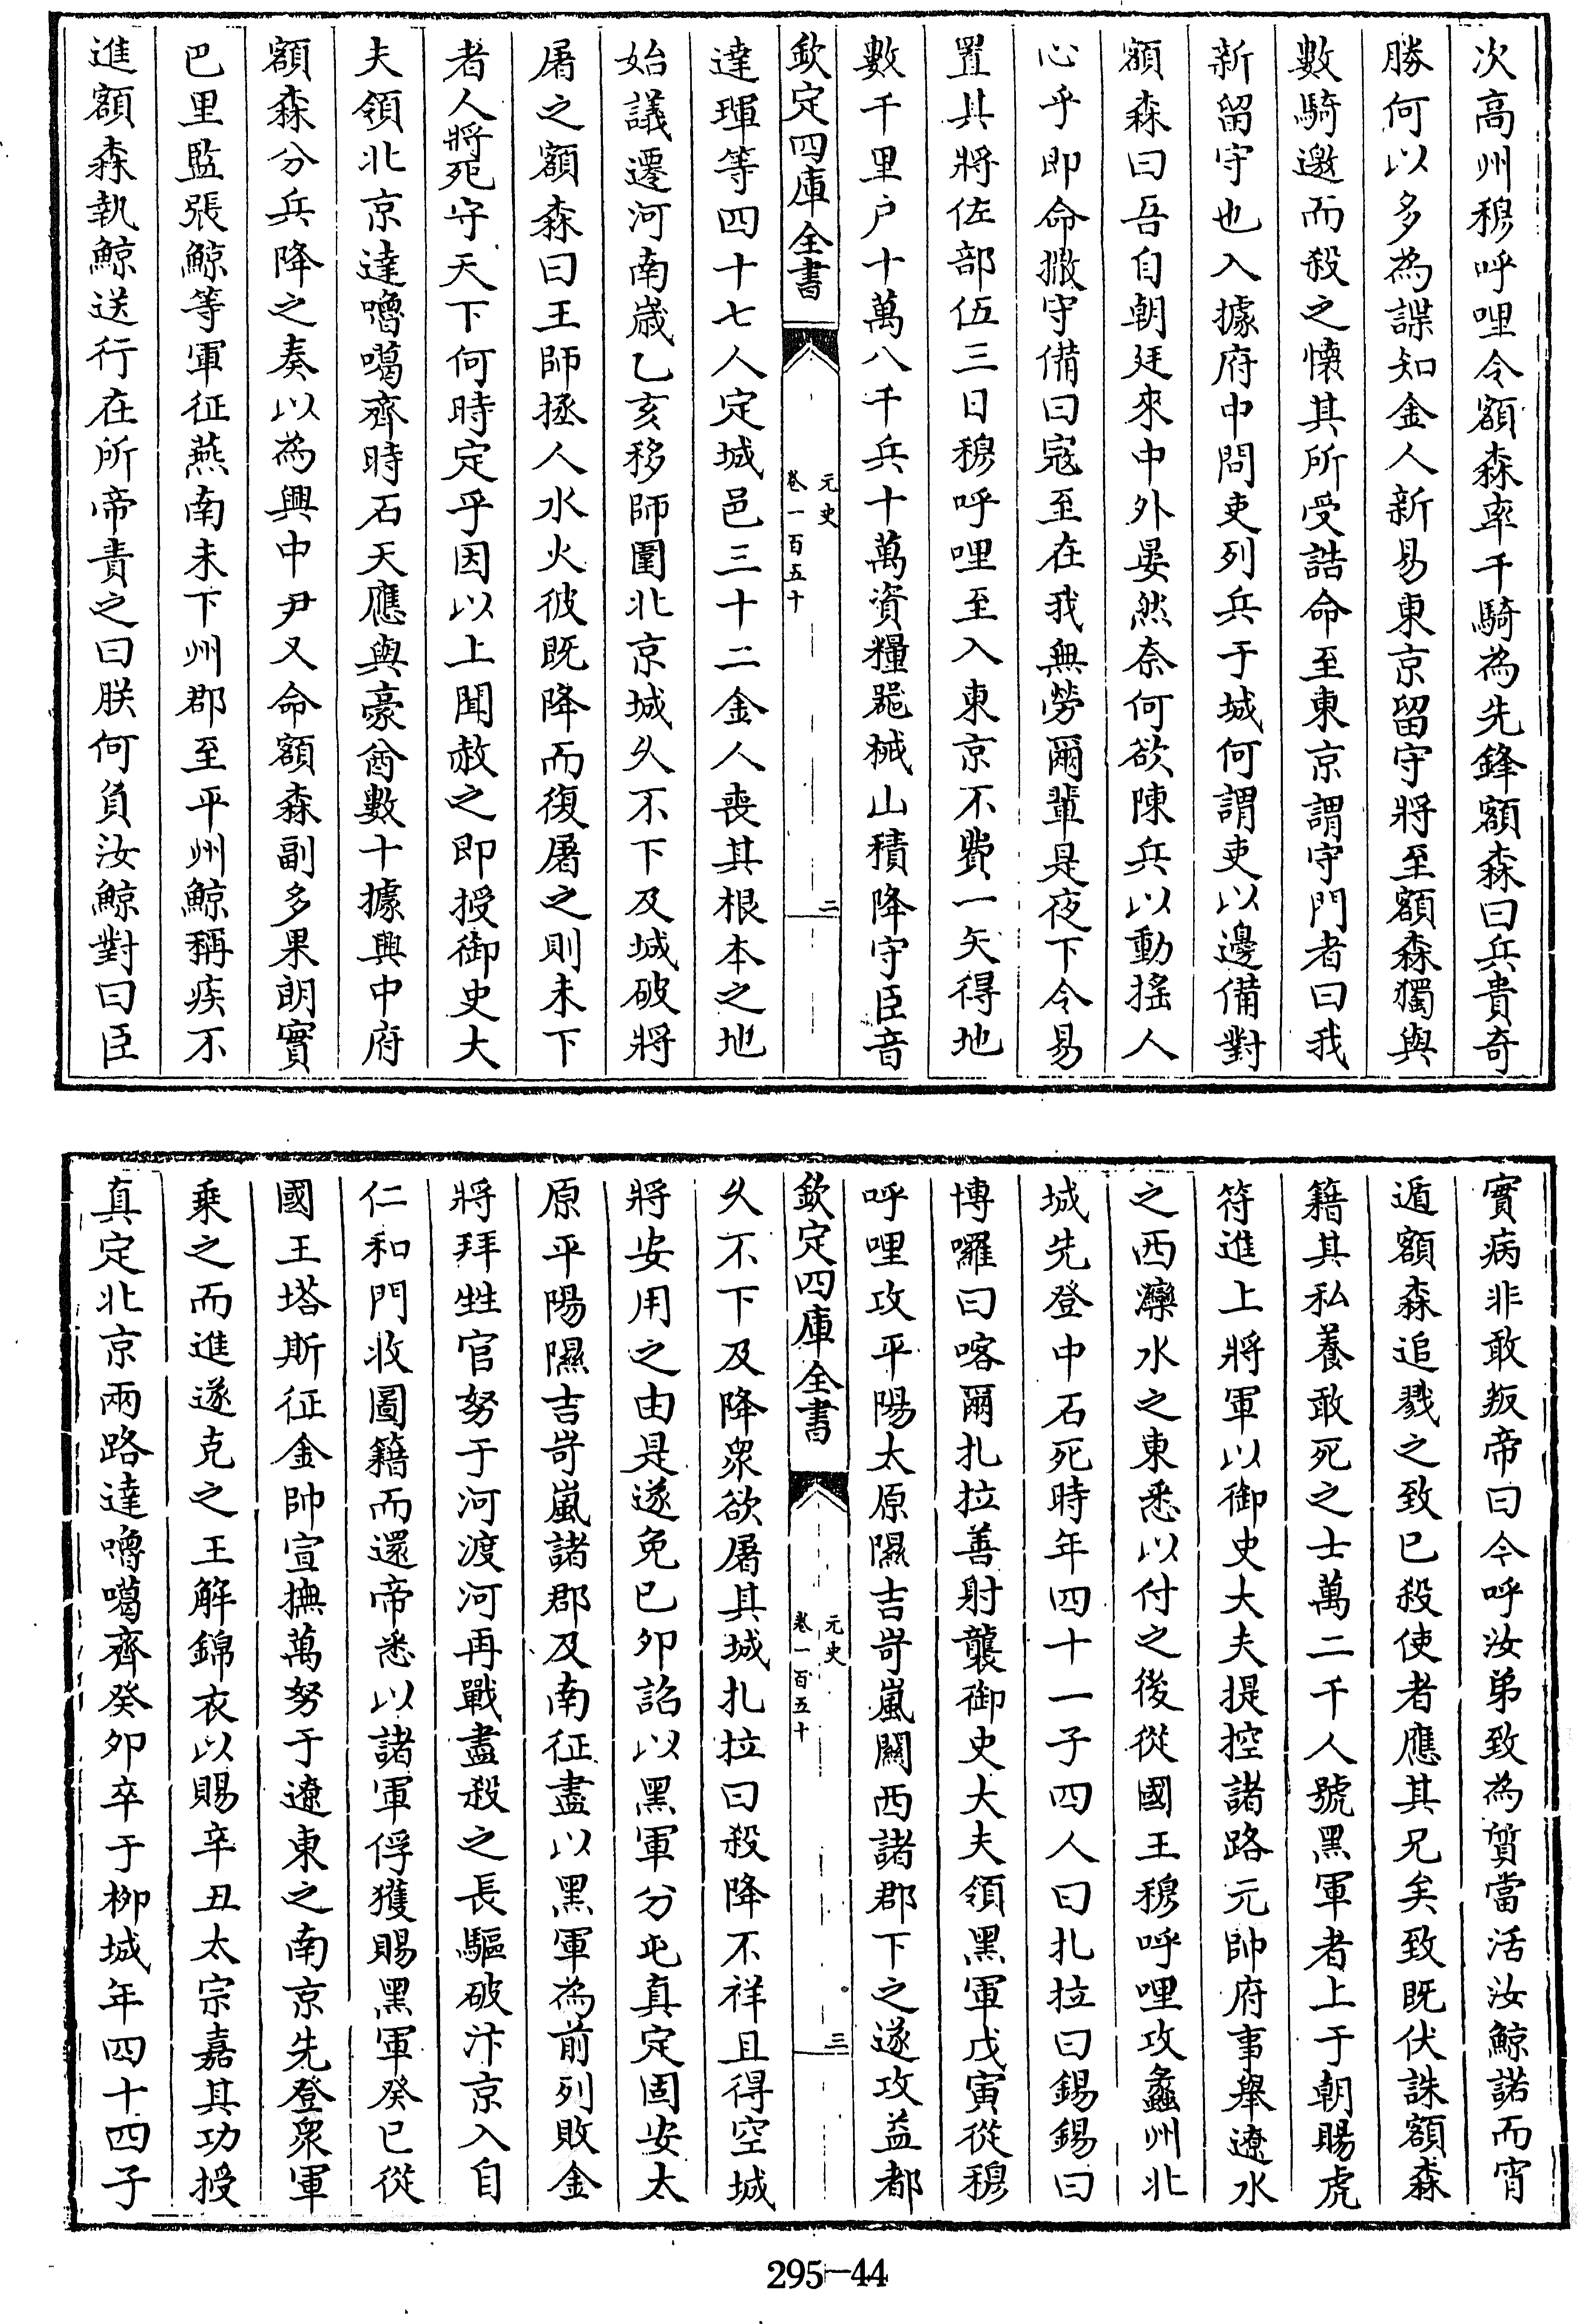 次高州穆呼哩令額森率千騎為先鋒額森曰兵貴奇
勝何以多為諜知金人新易東京留守將至額森獨與
數騎邀而殺之懷其所受誥命至東京謂守門者曰我
新留守也入據府中問吏列兵于城何謂吏以邊備對
額森曰吾自朝廷來中外晏然奈何欲陳兵以動搖人
心乎即命撤守備曰寇至在我無勞爾輩是夜下令易
置其將佐部伍三日穆呼哩至入東京不費一矢得地
數千里户十萬八千兵十萬資糧器械山積降守臣音
欽定四庫全書
元史
卷一百五十
二
達琿等四十七人定城邑三十二金人喪其根本之地
始議遷河南歲乙亥移師圍北京城久不下及城破將
屠之額森曰王師拯人水火彼既降而復屠之則未下
者人將死守天下何時定乎因以上聞赦之即授御史大
夫領北京達嚕噶齊時石天應與豪酋數十據興中府
額森分兵降之奏以為興中尹又命額森副多果朗實
巴里監張鯨等軍征燕南未下州郡至平州鯨稱疾不
進額森執鯨送行在所帝責之曰朕何負汝鯨對曰臣
實病非敢叛帝曰今呼汝弟致為質當活汝鯨諾而宵
遁額森追戮之致已殺使者應其兄矣致既伏誅額森
籍其私養敢死之士萬二千人號黑軍者上于朝賜虎
符進上將軍以御史大夫提控諸路元帥府事舉遼水
之西灤水之東悉以付之後從國王穆呼哩攻蠡州北
城先登中石死時年四十一子四人曰扎拉曰錫錫曰
博囉曰喀爾扎拉善射襲御史大夫領黑軍戊寅從穆
呼哩攻平陽太原隰吉岢嵐關西諸郡下之遂攻益都
欽定四庫全書
元史
卷一百五十
三
久不下及降衆欲屠其城扎拉曰殺降不祥且得空城
將安用之由是遂免己夘詔以黑軍分屯真定固安太
原平陽隰吉岢嵐諸郡及南征盡以黑軍為前列敗金
將拜甡官努于河渡河再戰盡殺之長驅破汴京入自
仁和門收圖籍而還帝悉以諸軍俘獲賜黑軍癸巳從
國王塔斯征金帥宣撫萬努于遼東之南京先登衆軍
乘之而進遂克之王解錦衣以賜辛丑太宗嘉其功授
真定北京兩路達嚕噶齊癸夘卒于柳城年四十四子
295-44